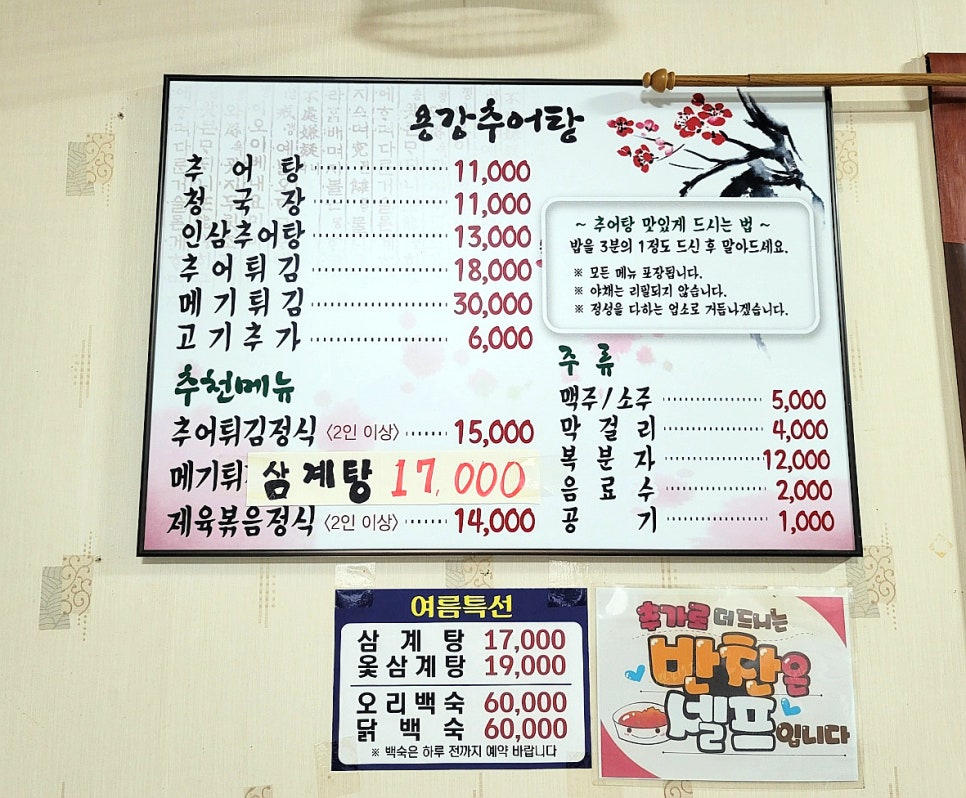 용강추어탕
추 어 탕 11,000
청 국 장 11,000
인삼추어탕 13,000
추어튀김 18,000
메기튀김 30,000
고기추가 6,000
추천메뉴
추어튀김정식 〈2인 이상〉 15,000
메기튀
삼계탕 17,000
제육볶음정식 〈2인 이상〉 14,000
~ 추어탕 맛있게 드시는 법 ~
밥을 3분의 1정도 드신 후 말아드세요.
※ 모든 메뉴 포장됩니다.
※ 야채는 리필되지 않습니다.
※ 정성을 다하는 업소로 거듭나겠습니다.
주 류
맥주/소주 5,000
막 걸 리 4,000
복 분 자 12,000
음 료 수 2,000
공 기 1,000
여름특선
삼 계 탕 17,000
옻삼계탕 19,000
오리백숙 60,000
닭 백 숙 60,000
※ 백숙은 하루 전까지 예약 바랍니다
추가로 더 드시는
반찬은
셀프입니다